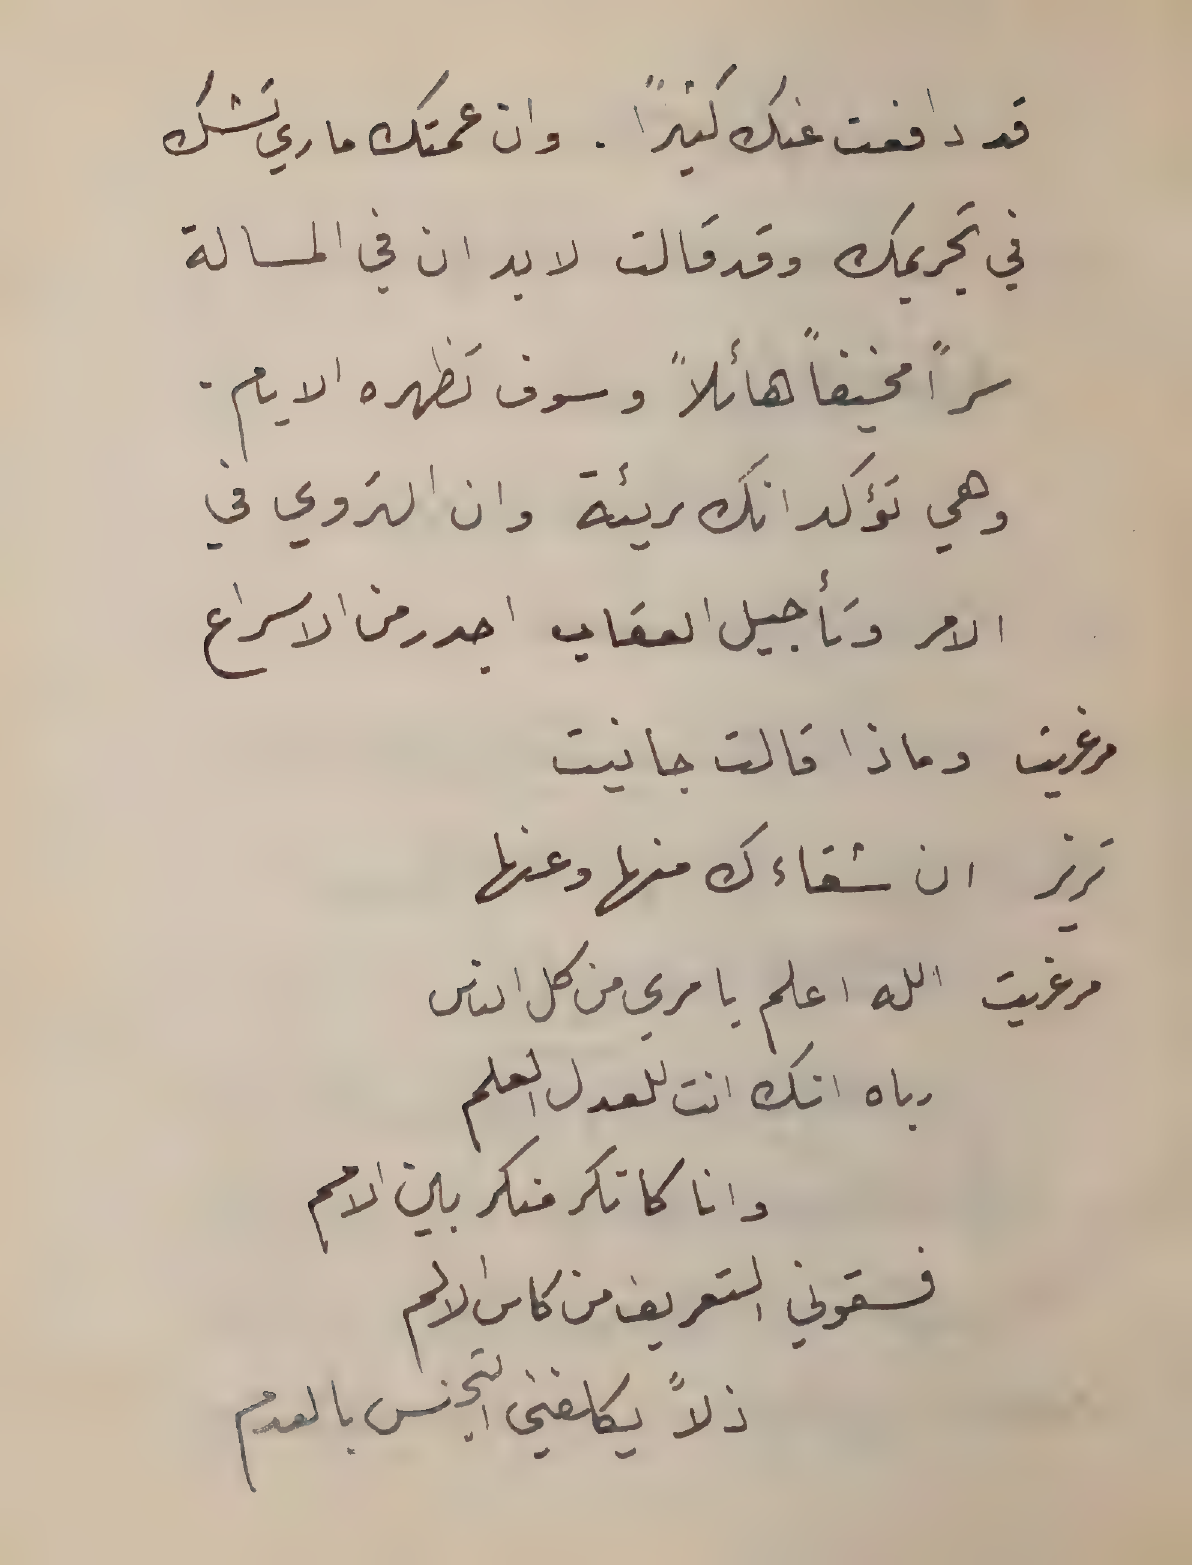 قد دافعت عنك كثيراً . وان عمتك ماري تشك
في تجريمك وقد قالت لا بد ان في المسالة
سراً مخيفاً هائلاً وسوف تظهره الايام .
وهي تؤكد انك بريئة وان التروي في
الامر وتأجيل العقاب اجدر من الاسراع
مرغريت وماذا قالت جانيت
تريز ان شقاءك منها وعنها
مرغريت الله اعلم بامري من كل الناس
رباه انك انت للعدل العلم
وانا كاتكر منكر بين الامم
فسقوني التعريف من كاس الالم
ذلاً يكلفني التجنس بالعدم